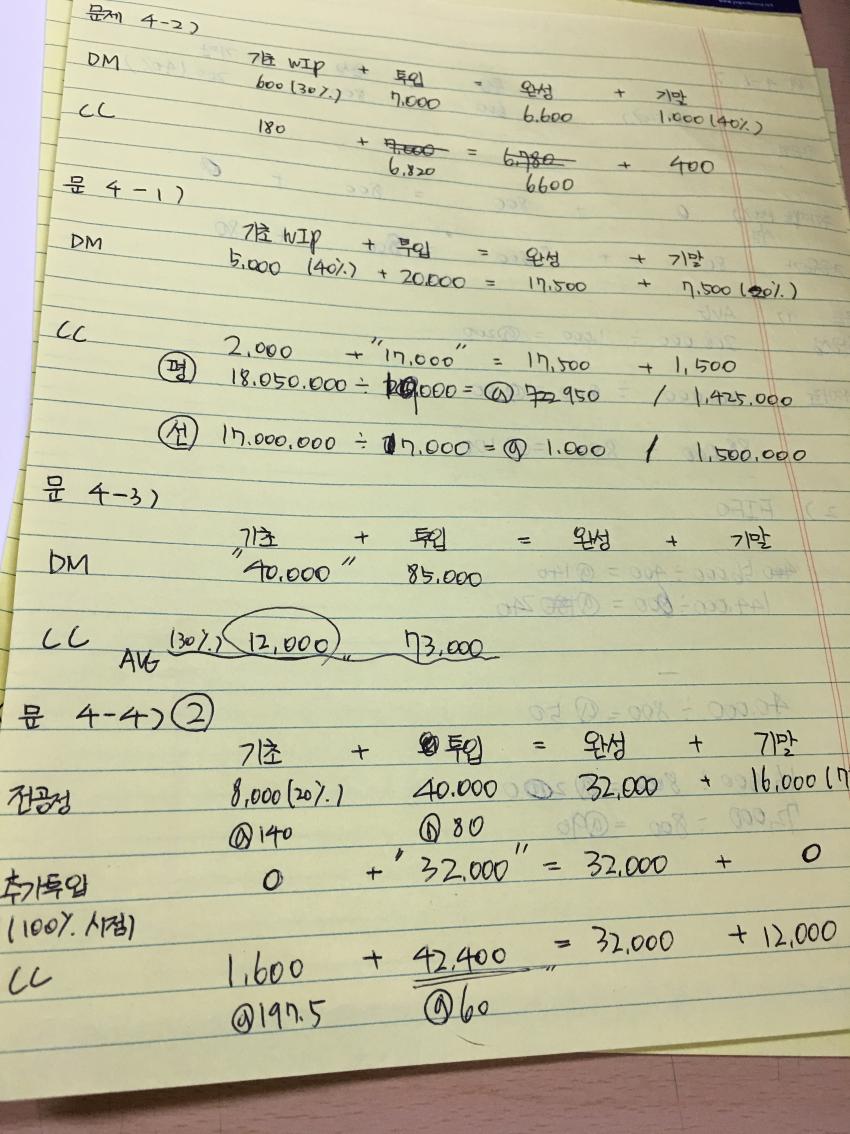 문제 4-2)
기초 WIP + 투입 = 완성 + 기말
DM 600 (30%) 7,000 6,600 1,000 (40%)
CC 180 + 7,000 = 6,780 + 400
6,820 6600
문 4-1)
기초 WIP + 투입 = 완성 + 기말
DM 5,000 (40%) + 20,000 = 17,500 + 7,500 (20%)
CC 2,000 + "17,000" = 17,500 + 1,500
평 18,050,000 ÷ 19,000 = @ 950 / 1,425,000
선 17,000,000 ÷ 17,000 = @ 1,000 / 1,500,000
문 4-3)
기초 + 투입 = 완성 + 기말
DM "40,000" 85,000
CC AVG (30%) 12,000 73,000
문 4-4) ②
기초 + 투입 = 완성 + 기말
전공정 8,000 (20%) 40,000 32,000 + 16,000 (7
@140 @80
추가투입 0 + "32,000" = 32,000 + 0
(100% 시점)
CC 1,600 + 42,400 = 32,000 + 12,000
@197.5 @60